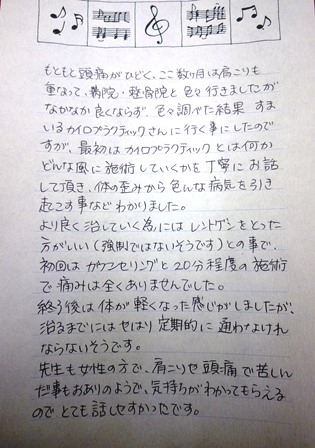 もともと頭痛がひどく、ここ数ヶ月は肩こりも
重なって、病院・整骨院と色々行きましたが
なかなか良くならず、色々調べた結果 すま
いるカイロプラクティックさんに行く事にしたので
すが、最初はカイロプラクティックとは何か
どんな風に施術していくかを丁寧にお話
して頂き、体の歪みから色んな病気を引き
起こす事などわかりました。
より良く治していく為にはレントゲンをとった
方がいい(強制ではないそうです)との事で、
初回はカウンセリングと20分程度の施術
で痛みは全くありませんでした。
終了後は体が軽くなった感じがしましたが、
治るまでにはやはり定期的に通わなければ
ならないそうです。
先生も女性の方で、肩こりや頭痛で苦しん
だ事もおありのようで、気持ちがわかってもらえる
のでとても話しやすかったです。